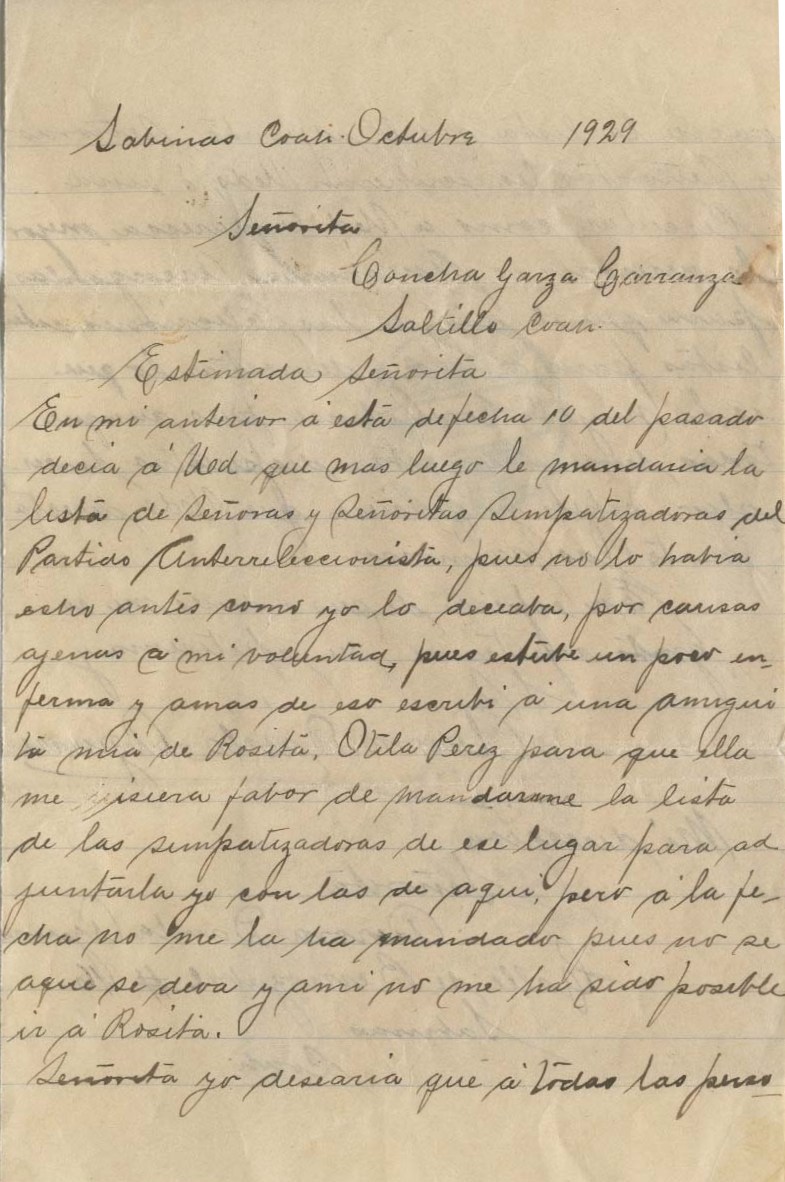 Sabinas Coah. Octubre 1929
Señorita
Concha Garza Carranza
Saltillo Coah.
Estimada Señorita
En mi anterior á está de fecha 10 del pasado
decia á Ud que mas luego le mandaria la
listá de Señoras y Señoritas Simpatizadoras del
Partido Anterreleccionista, pues no lo habia
echo antes como yo lo deceaba, por causas
ajenas á mi voluntad, pues estube un poco en-
ferma y amas de eso escribi á una amigui
ta mia de Rosita, Otila Perez para que ella
me isiera fabor de mandarme la lista
de las simpatizadoras de ese lugar para ad
juntarla yo con las de aqui, pero á la fe-
cha no me la ha mandado pues no se
aque se deva y ami no me ha sido posible
ir á Rosita.
Señorita yo desearia que á todas las perso-